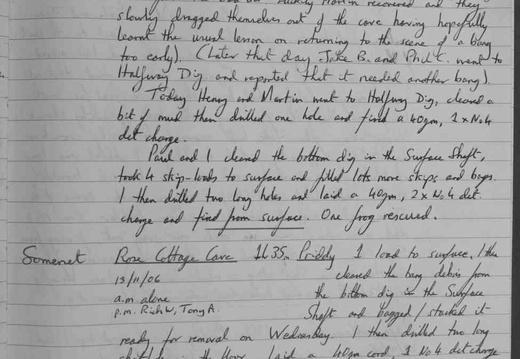 slowly dragged themselves out of the cave having hopefully
learnt the usual lesson on returning to the scene of a bang
too early). (Later that day Jake B. and Phil C. went to
Halfway Dig and reported that it needed another bang).
Today Henry and Martin went to Halfway Dig, cleared a
bit of mud then drilled one hole and fired a 40gm, 2 x No4
det charge.
Paul and I cleared the bottom dig in the Surface Shaft,
took 4 skip-loads to surface and filled lots more skips and bags.
I then drilled two long holes and laid a 40gm, 2 x No 4 det.
charge and fired from surface. One frog rescued.
Somerset Rose Cottage Cave 1h35m Priddy 1 load to surface. I then
13/11/06 cleared the bang debris from
a.m alone the bottom dig in the Surface
p.m. Rich W, Tony A. Shaft and bagged / stacked it
ready for removal on Wednesday. I then drilled two long
laid a 40gm cord, 1 No 4 det charge